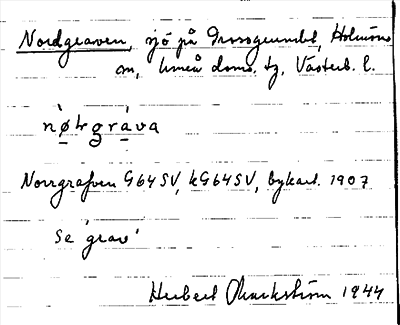 Nordgraven, sjö på Trossgrundet, Holmöns
sn, Umeå doms. tg, Västerb. l.
nø̀ɫgráva
Norrgrafven G64SV, kG64SV, bykart. 1907
Se 'grav'
Herbert Markström 1944